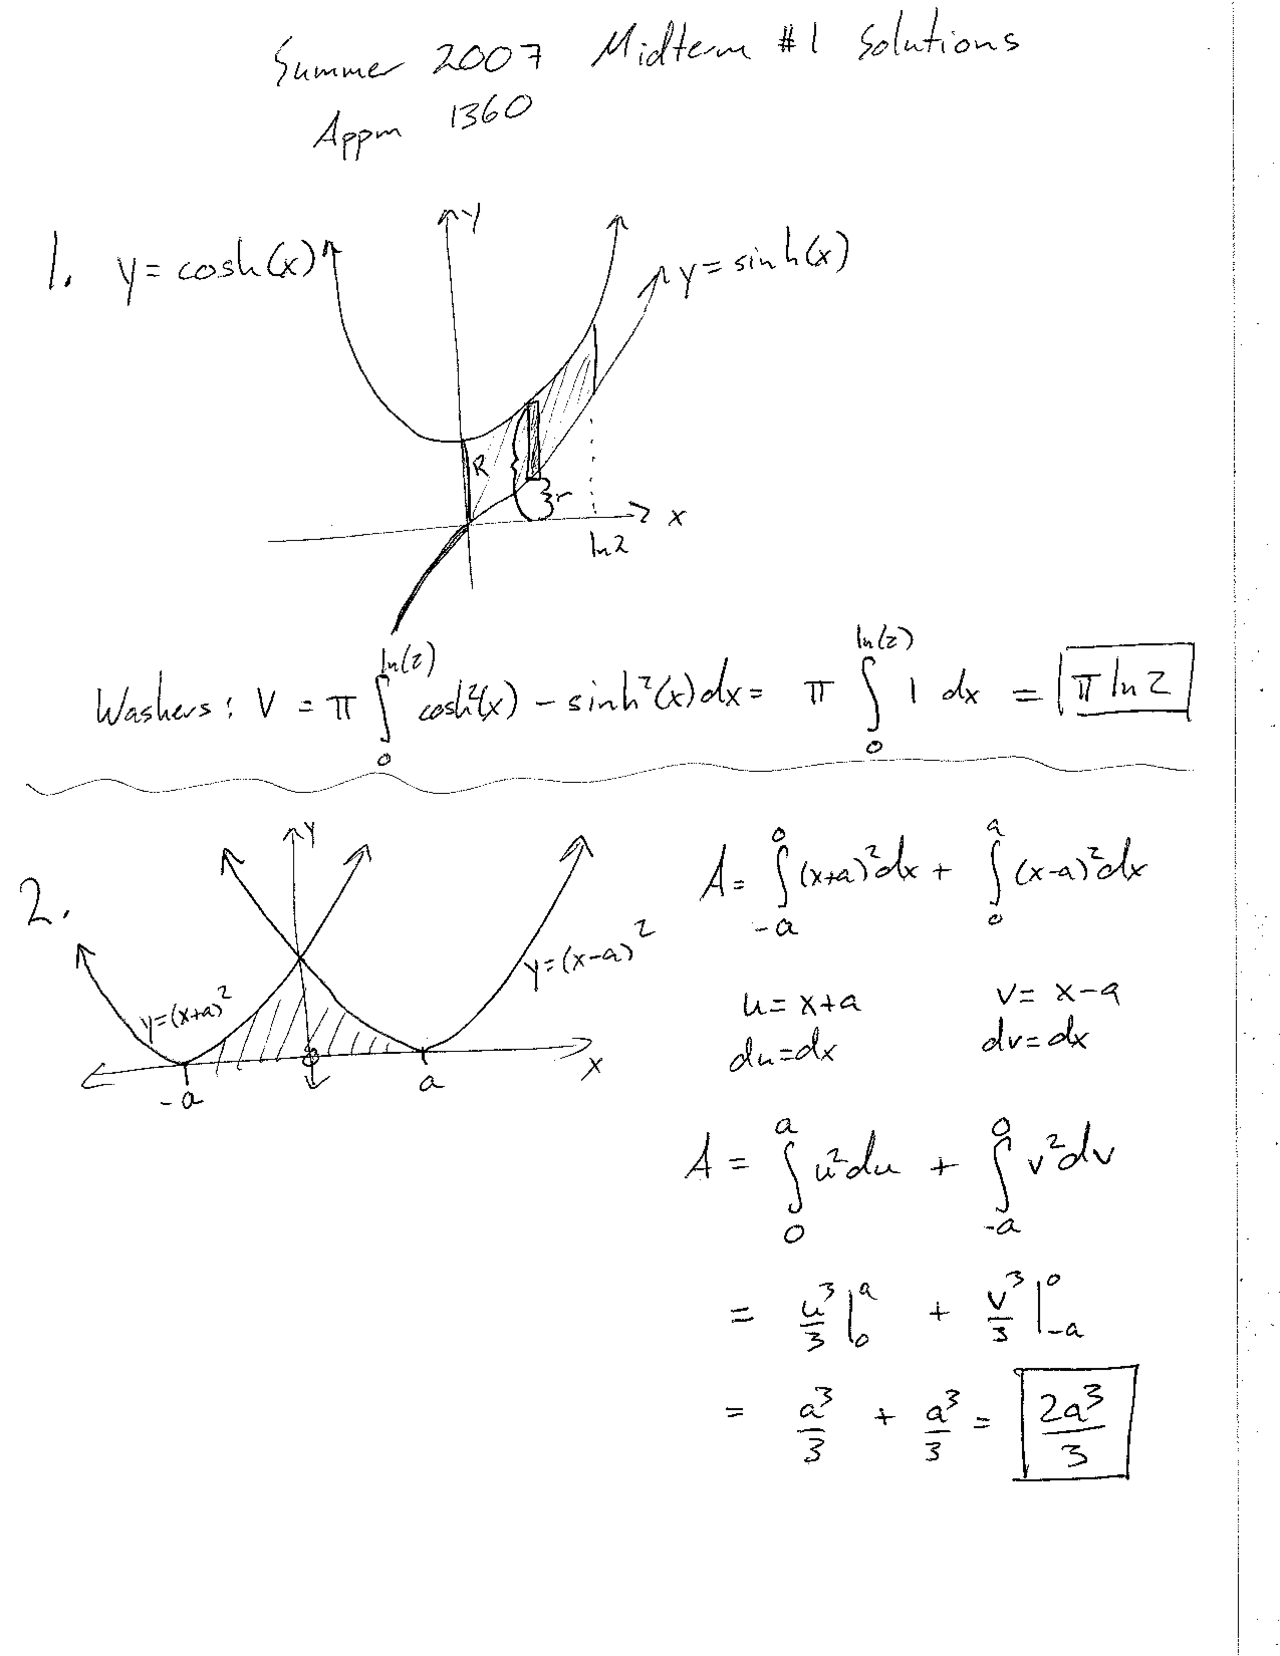 Summer 2007 Midterm #1 Solutions
Appm 1360
1. y=cosh(x)
y
y=sinh(x)
R
r
x
ln2
Washers: V = π ∫₀^ln(2) cosh²(x) - sinh²(x) dx = π ∫₀^ln(2) 1 dx = π ln 2
2.
y
y=(x+a)²
y=(x-a)²
-a
a
x
A = ∫₋ₐ⁰ (x+a)² dx + ∫₀ᵃ (x-a)² dx
u = x+a v = x-a
du=dx dv=dx
A = ∫₀ᵃ u² du + ∫₋ₐ⁰ v² dv
= u³/3 |₀ᵃ + v³/3 |₋ₐ⁰
= a³/3 + a³/3 = 2a³/3